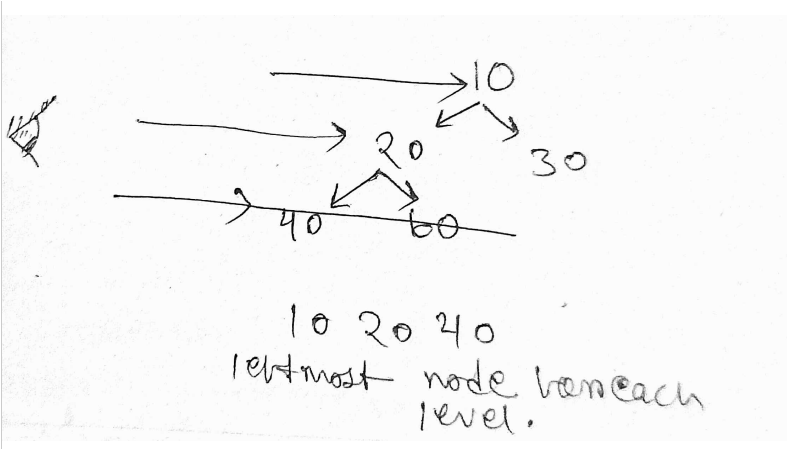 10
20
30
40 60
10 20 40
leftmost node from each
level.